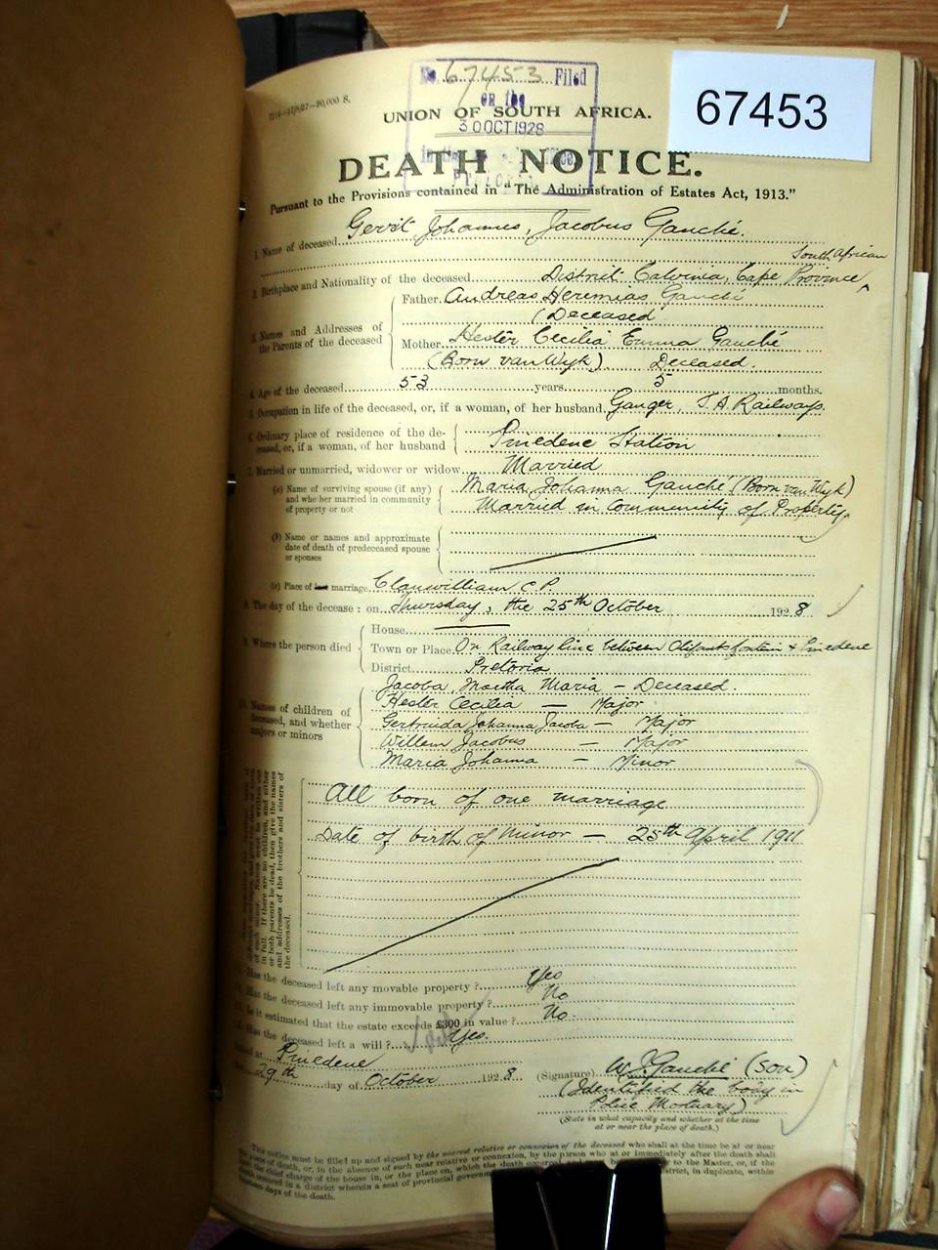 No. 67453 Filed
on the
30 OCT 1928
67453
UNION OF SOUTH AFRICA.
DEATH NOTICE.
Pursuant to the Provisions contained in "The Administration of Estates Act, 1913."
1. Name of deceased Gerrit Johannes Jacobus Gauché.
South African
2. Birthplace and Nationality of the deceased District Calvinia, Cape Province
3. Names and Addresses of the Parents of the deceased
Father. Andreas Jeremias Gauché
(Deceased
Mother. Hester Cecilia Emma Gauché
(Born van Wyk) Deceased.
4. Age of the deceased 53 years 5 months.
5. Occupation in life of the deceased, or, if a woman, of her husband. Ganger, S.A. Railways.
6. Ordinary place of residence of the deceased, or, if a woman, of her husband
Pinedene Station
7. Married or unmarried, widower or widow Married
(a) Name of surviving spouse (if any) and whether married in community of property or not
Maria Johanna Gauché (Born van Wyk)
Married in Community of Property.
(b) Name or names and approximate date of death of predeceased spouse or spouses
(c) Place of last marriage Clanwilliam C.P.
8. The day of the decease: on Thursday, the 25th October 1928
9. Where the person died
House
Town or Place. On Railway line between Olifantsfontein & Pinedene
District Pretoria
10. Names of children of deceased, and whether majors or minors
Jacoba Martha Maria - Deceased.
Hester Cecilia - Major
Gertruida Johanna Jacoba - Major
Willem Jacobus - Major
Maria Johanna - Minor
of each minor.
in full. If there are no children, and either
or both parents be dead, then give the names
and addresses of the brothers and sisters of
the deceased.
All born of one marriage
Date of birth of Minor - 25th April 1911
Has the deceased left any movable property? Yes
Has the deceased left any immovable property? No
Is it estimated that the estate exceeds £300 in value? No.
Has the deceased left a will? Yes.
Dated at Pinedene
29th day of October 1928
(Signature) W.J. Gauché (Son)
(Identified the body in
Police Mortuary)
(State in what capacity and whether at the time
or near the place of death.)
This notice must be filled up and signed by the nearest relative or connexion of the deceased who shall at the time be at or near
the place of death, or, in the absence of such near relative or connexion, by the person who at or immediately after the death shall
the chief charge of the house in, or the place on, which the death occurred to the Master, or, if the
occurred in a district wherein a seat of provincial district, in duplicate, within
days of the death.